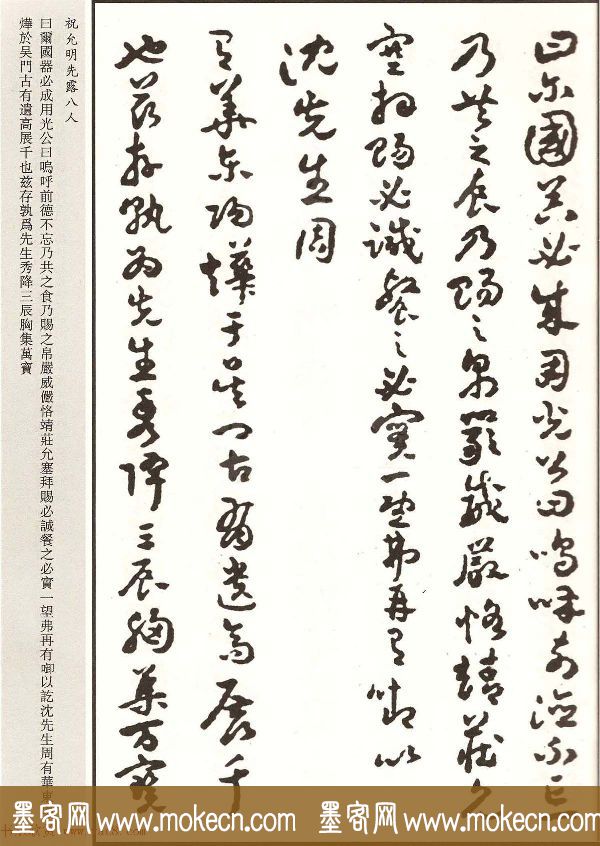 祝允明先露八人
曰爾國器必成用光公曰嗚呼前德不忘乃共之食乃賜之帛嚴威儼恪靖莊允塞拜賜必誠餐之必實一望弗再有啣以訖沈先生周有華
燁於吴門古有遺高展千也兹存孰爲先生秀降三辰胸集萬寶
曰尔國器必成用光公曰嗚呼前德不忘
乃共之食乃賜之帛嚴威儼恪靖莊允
塞拜賜必誠餐之必實一望弗再有啣以
沈先生周
有華東陽燁于吴門古有遺高展千
也兹存孰為先生秀降三辰胸集万寶
墨客网 www.mokecn.com 墨客网 www.mokecn.com